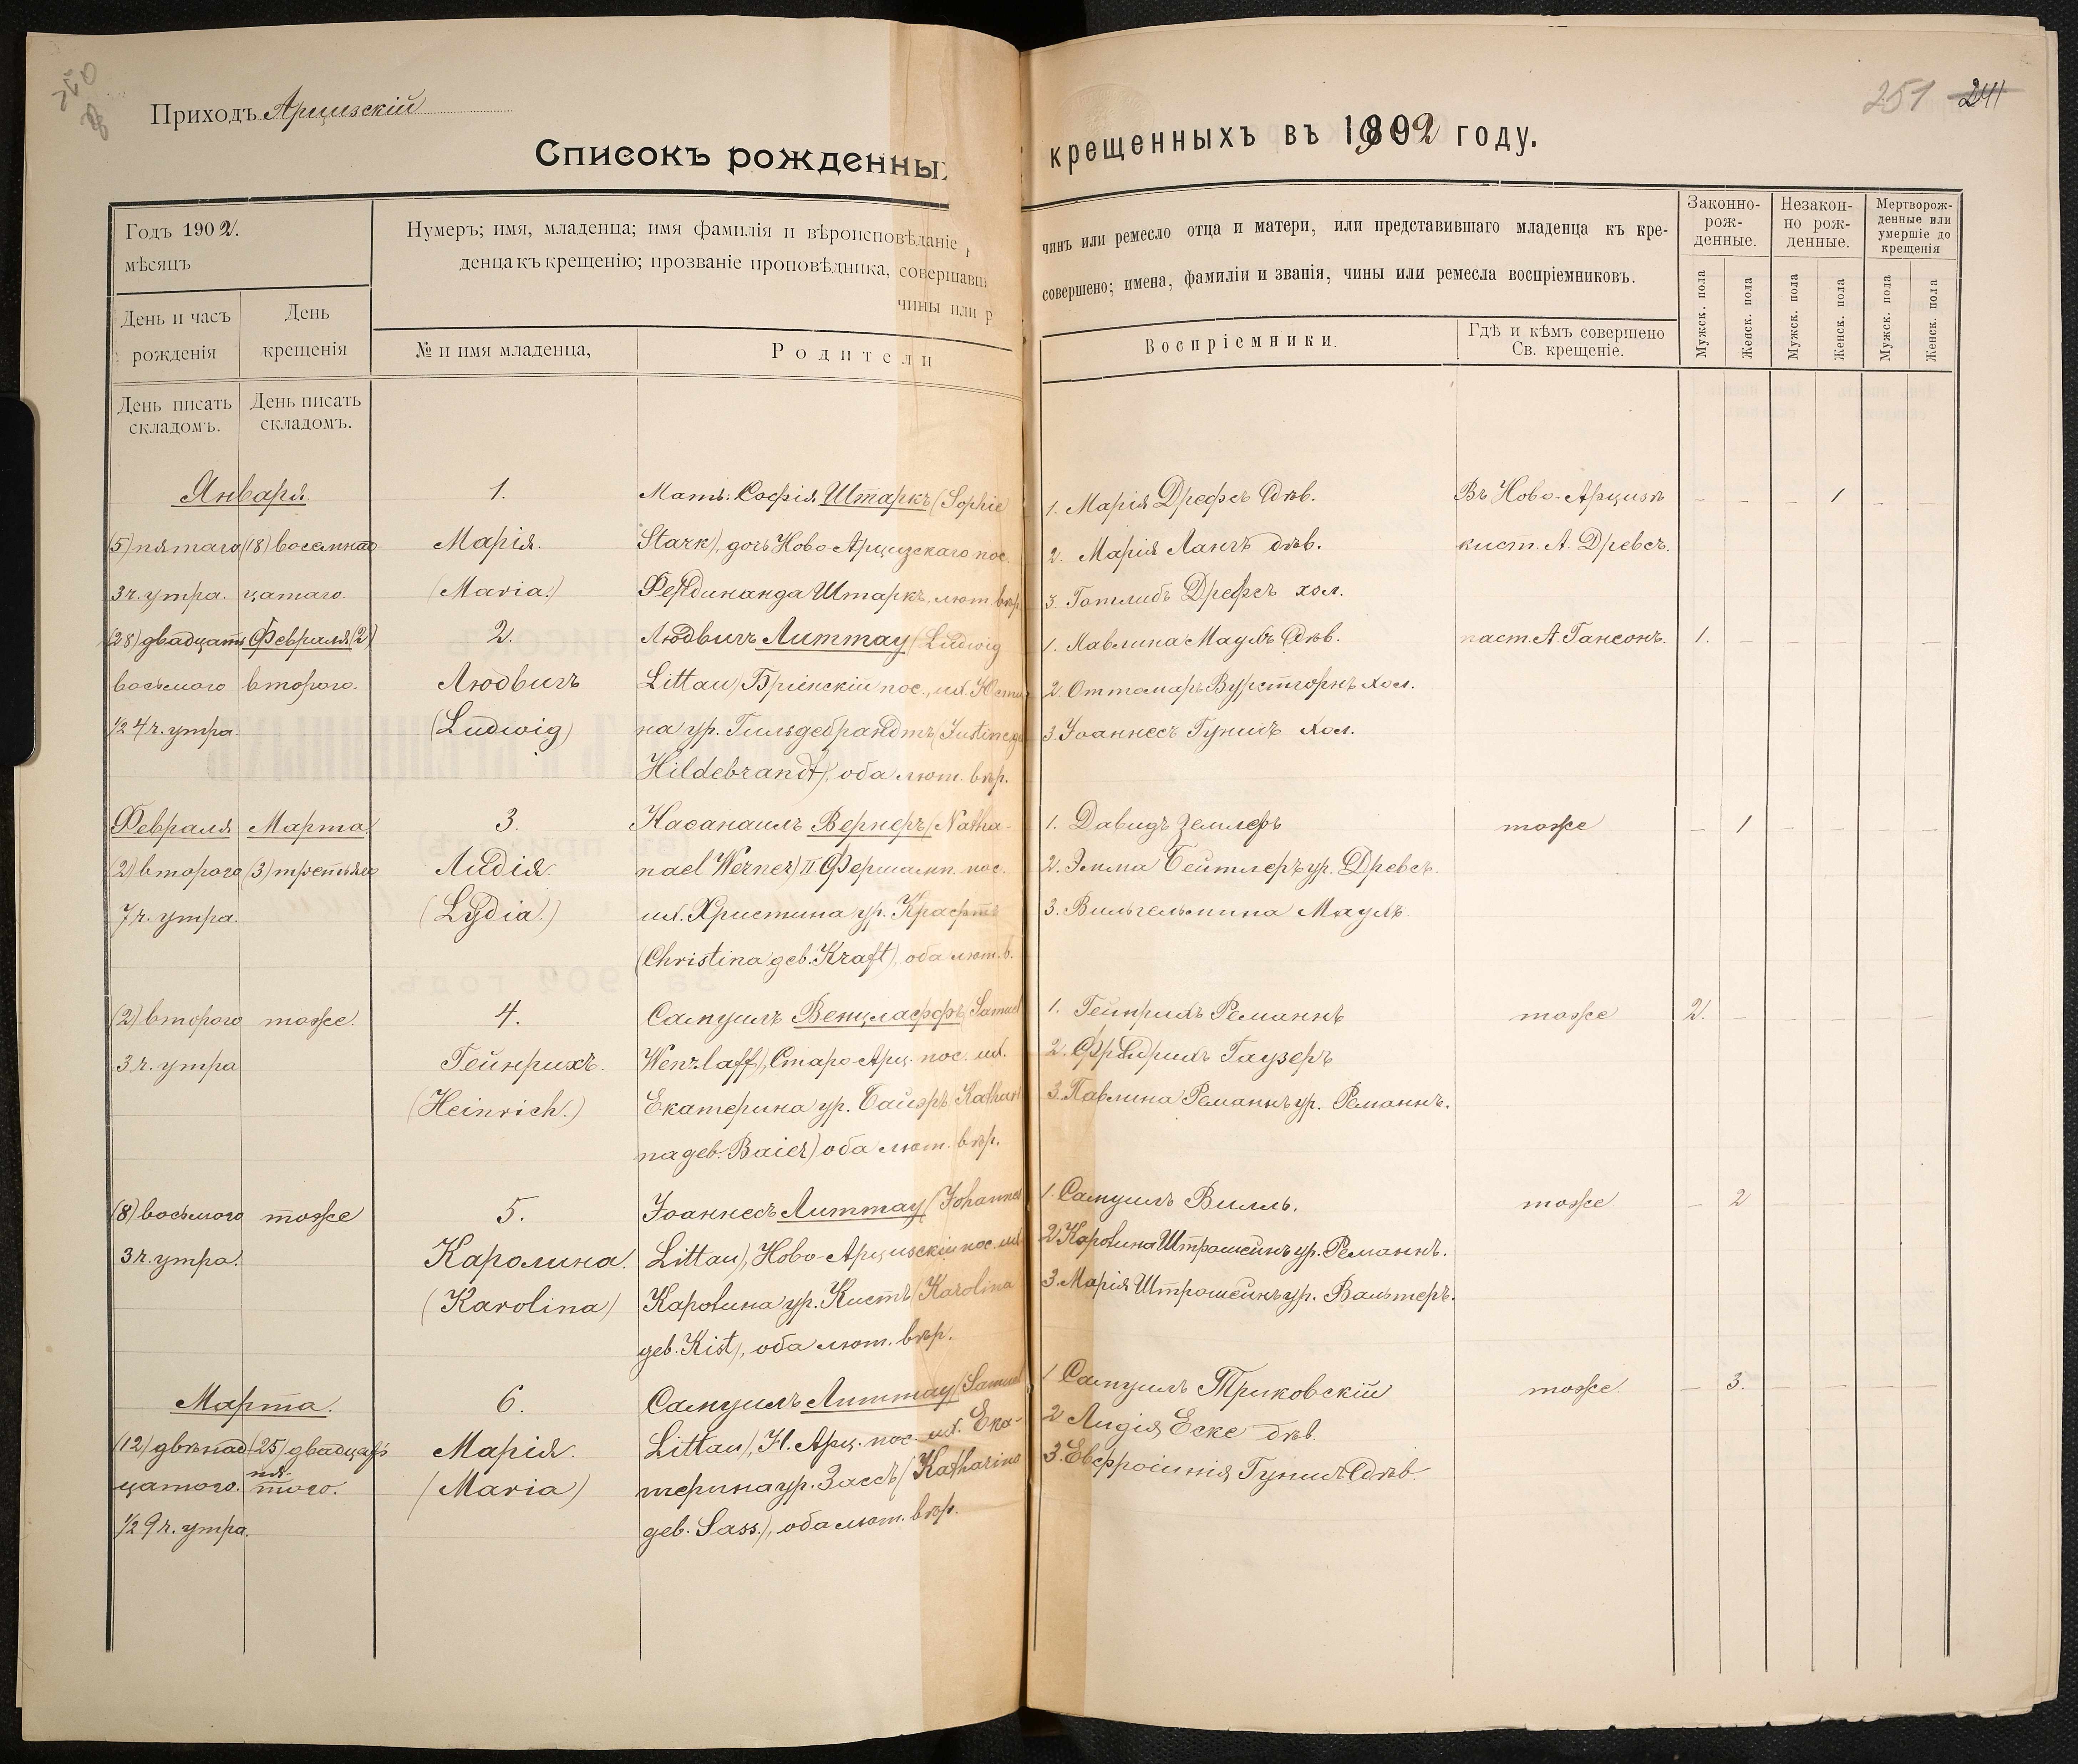 Приходъ Арцизскій
251 241
Списокъ рожденны
крещенныхъ въ 1902 году.
Годъ 1902.
мѣсяцъ
День и часъ рожденія
День крещенія
Нумеръ; имя, младенца; имя фамилія и вѣроисповѣданіе
денца къ крещенію; прозваніе проповѣдника, совершавш
чины или р
№ и имя младенца,
Родители
чинъ или ремесло отца и матери, или представившаго младенца къ кре-
совершено; имена, фамиліи и званія, чины или ремесла воспріемниковъ.
Воспріемники.
Гдѣ и кѣмъ совершено
Св. крещеніе.
Законно-
рож-
денные.
Незакон-
но рож-
денные.
Мертворож-
денные или
умершіе до
крещенія
Мужск. пола
Женск. пола
Мужск. пола
Женск. пола
Мужск. пола
Женск. пола
День писать
складомъ.
День писать
складомъ.
Января
(5) пятаго (18) восемнад-
3 ч. утра. цатаго.
1.
Марія.
(Maria.)
Мать: Софія Штаркъ (Sophie
Stark), дочь Ново-Арцизскаго пос.
Фердинанда Штаркъ, лют. вѣр.
1. Марія Дрефсъ дѣв.
2. Марія Лангъ дѣв.
3. Готлибъ Дрефсъ хол.
Въ Ново-Арцизѣ
кист. А. Древсъ.
— — — 1 — —
(28) двадцать Февраля (2)
восьмого второго.
½ 4 ч. утра.
2.
Людвигъ
(Ludwig)
Людвигъ Литтау (Ludwig
Littau) Бріенскій пос., ж. Юсти
на ур. Гильдебрандтъ (Justine geb
Hildebrandt), оба лют. вѣр.
1. Павлина Мауль дѣв.
2. Оттомаръ Вурстгорнъ хол.
3. Іоаннесъ Гуничъ хол.
паст. А Гансонъ.
1. — — — — —
Февраля Марта
(2) второго (3) третьяго
7 ч. утра.
3.
Лидія.
(Lydia.)
Насанаилъ Вернеръ (Natha-
nael Werner) II Фершамп. пос.
ж. Христина ур. Крафтъ
(Christina geb. Kraft), оба лют. в.
1. Давидъ Землеръ
2. Эмма Бейтлеръ ур. Древсъ.
3. Вильгельмина Мауль.
тоже
— 1 — — — —
(2) второго тоже.
3 ч. утра
4.
Гейнрихъ.
(Heinrich.)
Самуилъ Венцлаффъ (Samuel
Wenzlaff), Старо-Арц. пос. ж.
Екатерина ур. Байэръ (Kathari
na geb. Baier) оба лют. вѣр.
1. Гейнрихъ Реманнъ
2. Фридрихъ Гаузеръ
3. Павлина Реманнъ ур. Реманнъ.
тоже
2. — — — — —
(8) восьмого тоже
3 ч. утра.
5.
Каролина.
(Karolina)
Іоаннесъ Литтау (Johannes
Littau), Ново-Арцизскій пос. ж.
Каролина ур. Кистъ (Karolina
geb. Kist), оба лют. вѣр.
1. Самуилъ Вилль.
2. Каролина Штрошейнъ ур. Реманнъ.
3. Марія Штрошейнъ ур. Вальтеръ.
тоже
— 2 — — — —
Марта.
(12) двѣнад- (25) двадцать
цатого. пя-
того.
½ 9 ч. утра.
6.
Марія.
(Maria)
Самуилъ Литтау (Samuel
Littau), Н. Арц. пос. ж. Ека-
терина ур. Зассъ (Katharina
geb. Sass.), оба лют. вѣр.
1. Самуилъ Триковскій
2. Лидія Еске дѣв.
3. Евфросинія Гуничъ дѣв.
тоже.
— 3. — — — —